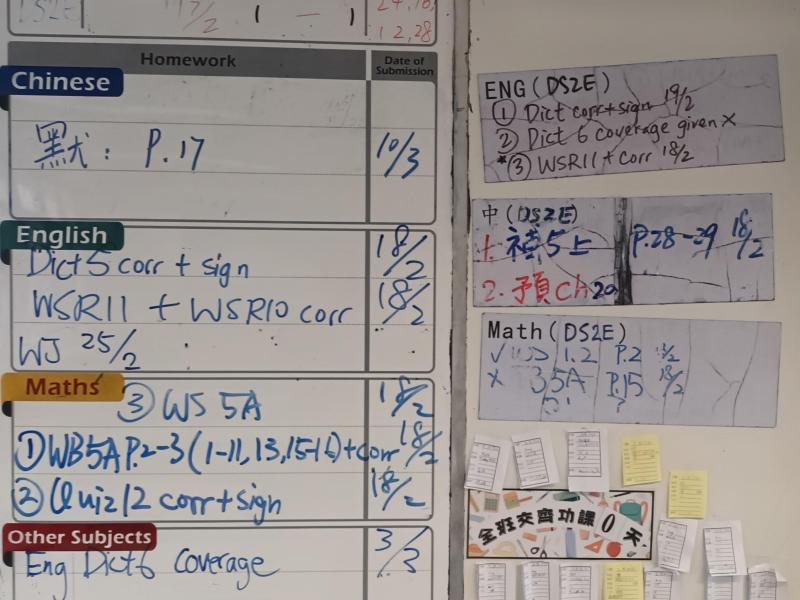 12,28
Homework
Date of Submission
Chinese
默: P.17 10/3
English
Dict 5 corr + sign 18/2
WSR11 + WSR10 corr 18/2
WJ 25/2
Maths
③ WS 5A 18/2
① WB5A P.2-3 (1-11, 13, 15-16) + corr 18/2
② Quiz 12 corr + sign 18/2
Other Subjects
Eng Dict 6 Coverage 3/3
ENG (DS2E)
① Dict corr + sign 19/2
② Dict 6 coverage given x
* ③ WSR11 + Corr 18/2
中 (DS2E)
1. 5上 P.28-29 18/2
2. 預 Ch 20
Math (DS2E)
✓ 1.2 P.2
x 5A P.15 18/2
全班交齊功課 0 天